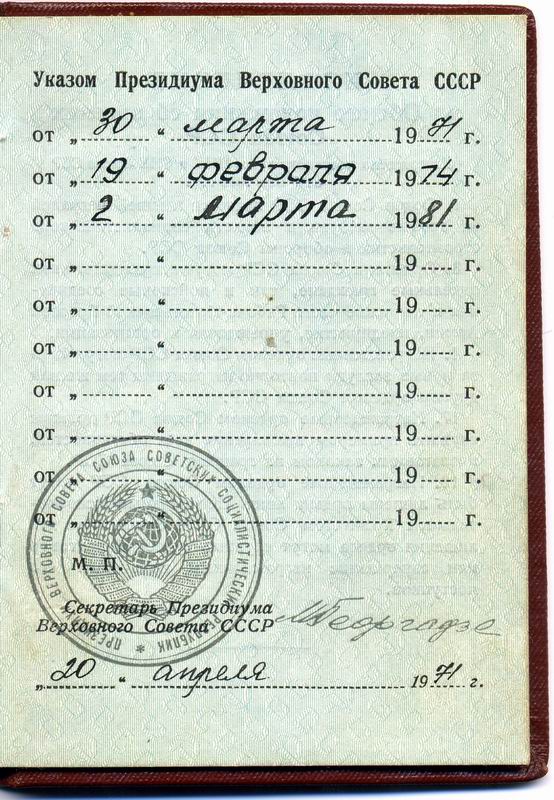 Указом Президиума Верховного Совета СССР
от „ 30 “ марта 1971 г.
от „ 19 “ февраля 1974 г.
от „ 2 “ марта 1981 г.
от „ “ 19 г.
от „ “ 19 г.
от „ “ 19 г.
от „ “ 19 г.
от „ “ 19 г.
от „ “ 19 г.
от „ “ 19 г.
ПРЕЗИДИУМ ВЕРХОВНОГО СОВЕТА СОЮЗА СОВЕТСКИХ СОЦИАЛИСТИЧЕСКИХ РЕСПУБЛИК
М. П.
Секретарь Президиума
Верховного Совета СССР МГеоргадзе
„ 20 “ апреля 1971 г.